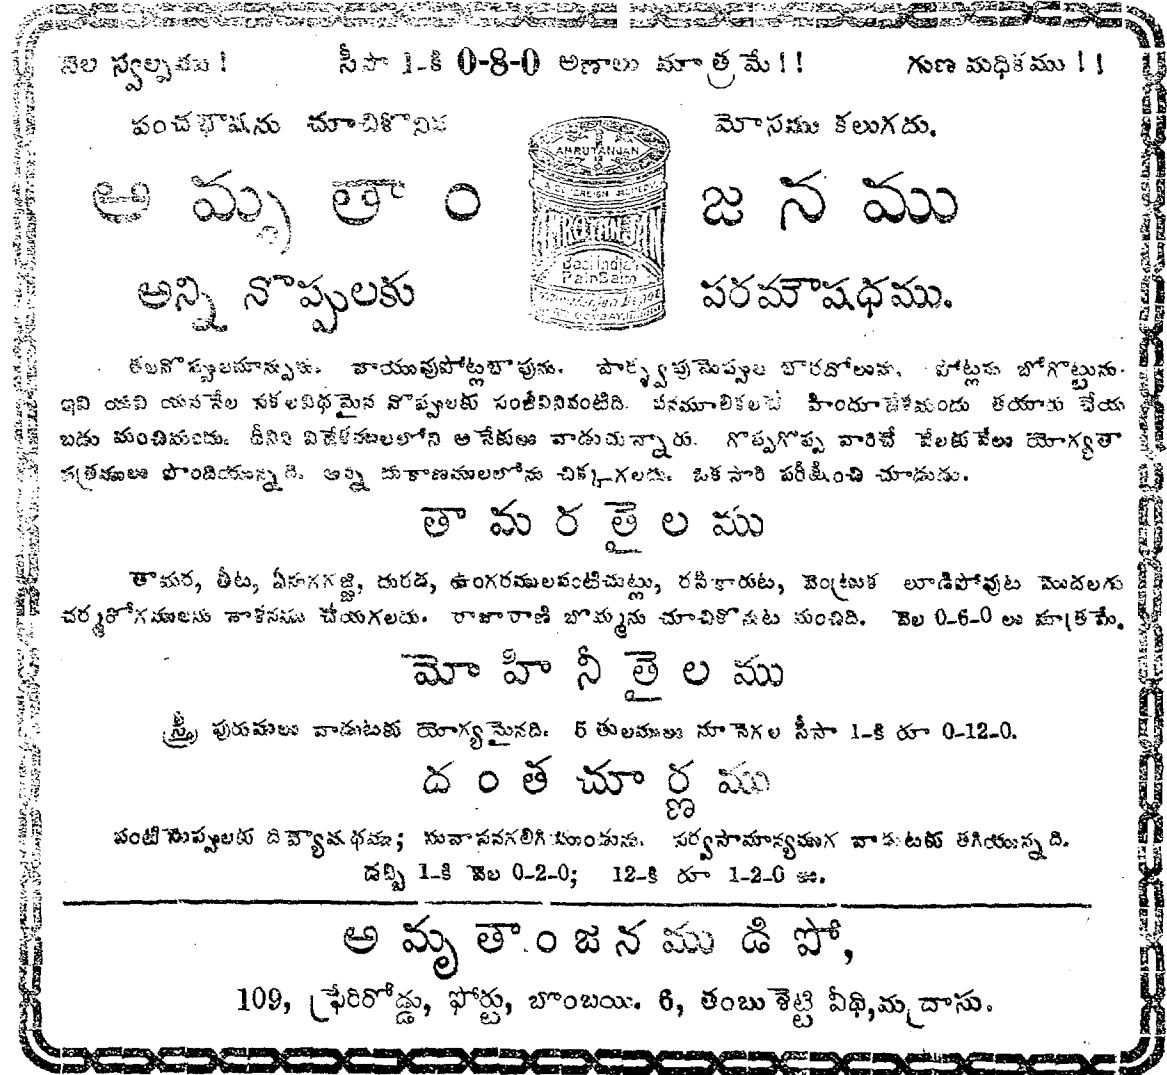 వెల స్వల్పము! సీసా 1-కి 0-8-0 అణాలు మాత్రమే!! గుణ మధికము!!
పంచభాషను చూచికొనిన మోసము కలుగదు.
అమృతాంజనము
AMRUTANJAN
AMRUTANJAN
Best India's
Pain Balm
అన్ని నొప్పులకు పరమౌషధము.
తలనొప్పులమాన్పును. వాయువుపోట్లబాపును. పార్శ్వపునొప్పుల బారదోలును. పోట్లను బోగొట్టును.
ఇవి యవి యననేల సకలవిధమైన నొప్పులకు సంజీవినివంటిది. వనమూలికలచే హిందూదేశమందు తయారు చేయ
బడు మంచిమందు. దీనిని విదేశములలోని అనేకులు వాడుచున్నారు. గొప్పగొప్ప వారిచే వేలకువేలు యోగ్యతా
పత్రములు పొందియున్నది. అన్ని దుకాణములలోను చిక్కగలదు. ఒక సారి పరీక్షించి చూడుడు.
తామరతైలము
తామర, తీట, ఏనుగగజ్జి, దురద, ఉంగరములవంటిచుట్లు, రసికారుట, వెంట్రుక లూడిపోవుట మొదలగు
చర్మరోగములను నాశనము చేయగలదు. రాజారాణి బొమ్మను చూచికొనుట మంచిది. వెల 0-6-0 లు మాత్రమే.
మోహినీతైలము
స్త్రీ పురుషులు వాడుటకు యోగ్యమైనది. 5 తులములు నూనెగల సీసా 1-కి రూ 0-12-0.
దంతచూర్ణము
పంటినొప్పులకు దివ్యౌషధము; సువాసనగలిగియుండును. సర్వసామాన్యముగ వాడుటకు తగియున్నది.
డబ్బి 1-కి వెల 0-2-0; 12-కి రూ 1-2-0 లు.
అమృతాంజనము డిపో,
109, ఫ్రేరిరోడ్డు, ఫోర్టు, బొంబయి. 6, తంబుశెట్టి వీథి, మద్రాసు.